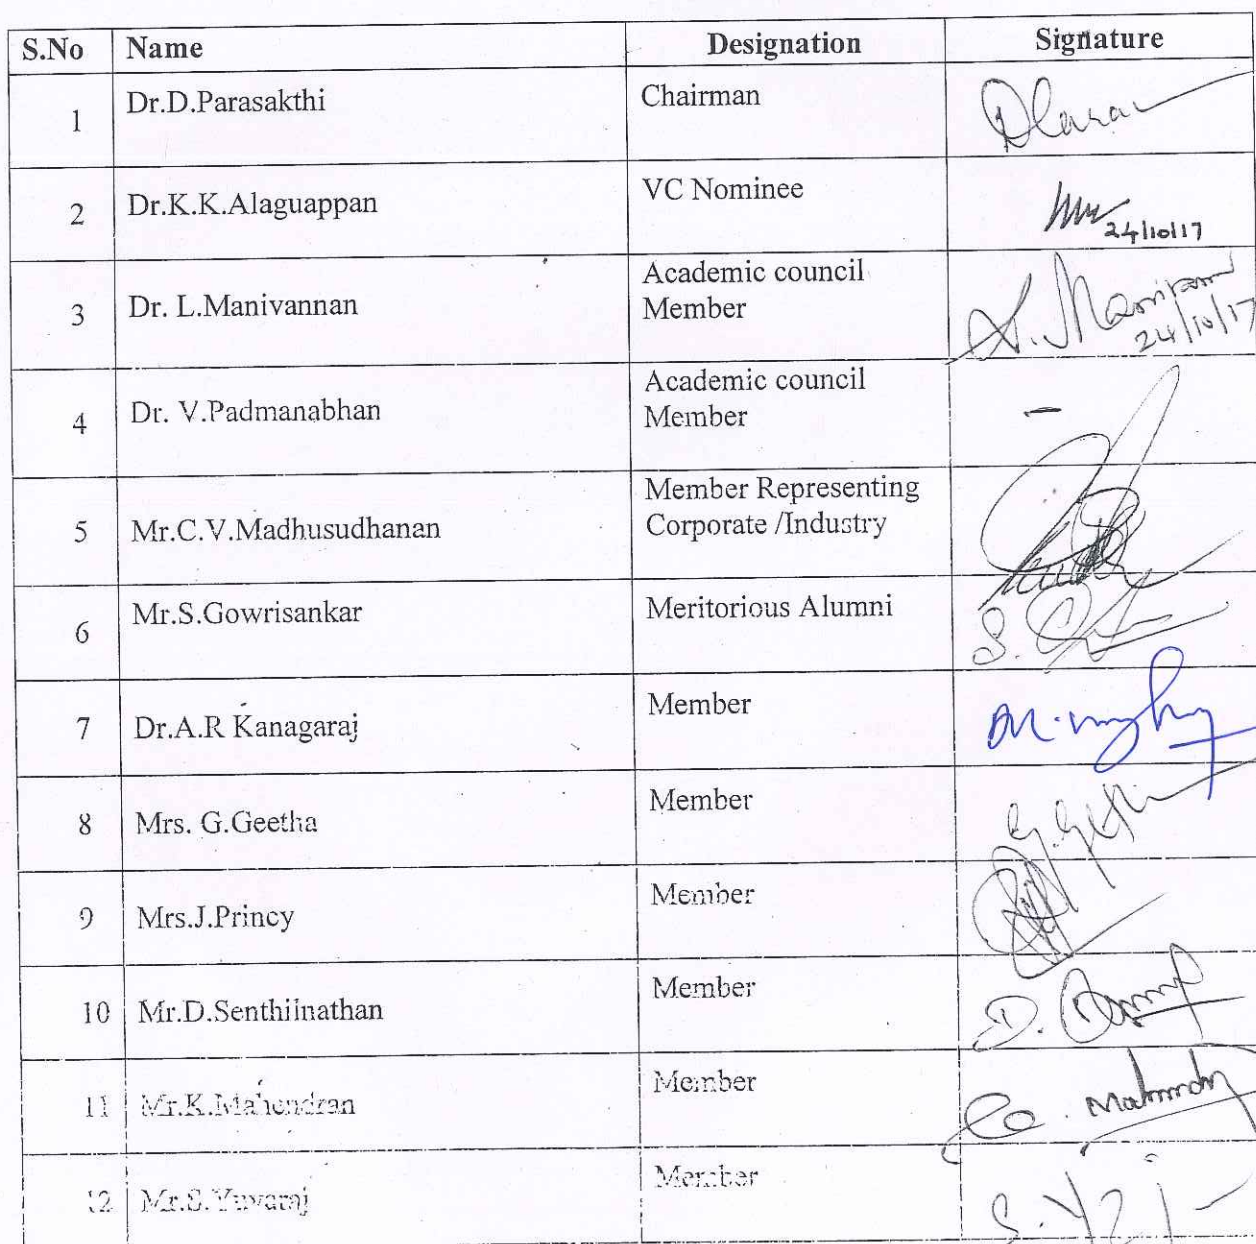 S.No Name Designation Signature
1 Dr.D.Parasakthi Chairman
2 Dr.K.K.Alaguappan VC Nominee
24/10/17
3 Dr. L.Manivannan Academic council
Member
24/10/17
4 Dr. V.Padmanabhan Academic council
Member -
5 Mr.C.V.Madhusudhanan Member Representing
Corporate /Industry
6 Mr.S.Gowrisankar Meritorious Alumni
S.
7 Dr.A.R Kanagaraj Member
8 Mrs. G.Geetha Member
G.Geetha
9 Mrs.J.Princy Member
10 Mr.D.Senthilnathan Member
D.
11 Mr.K.Mahendran Member
12 Mr.S.Yuvaraj Member
S.